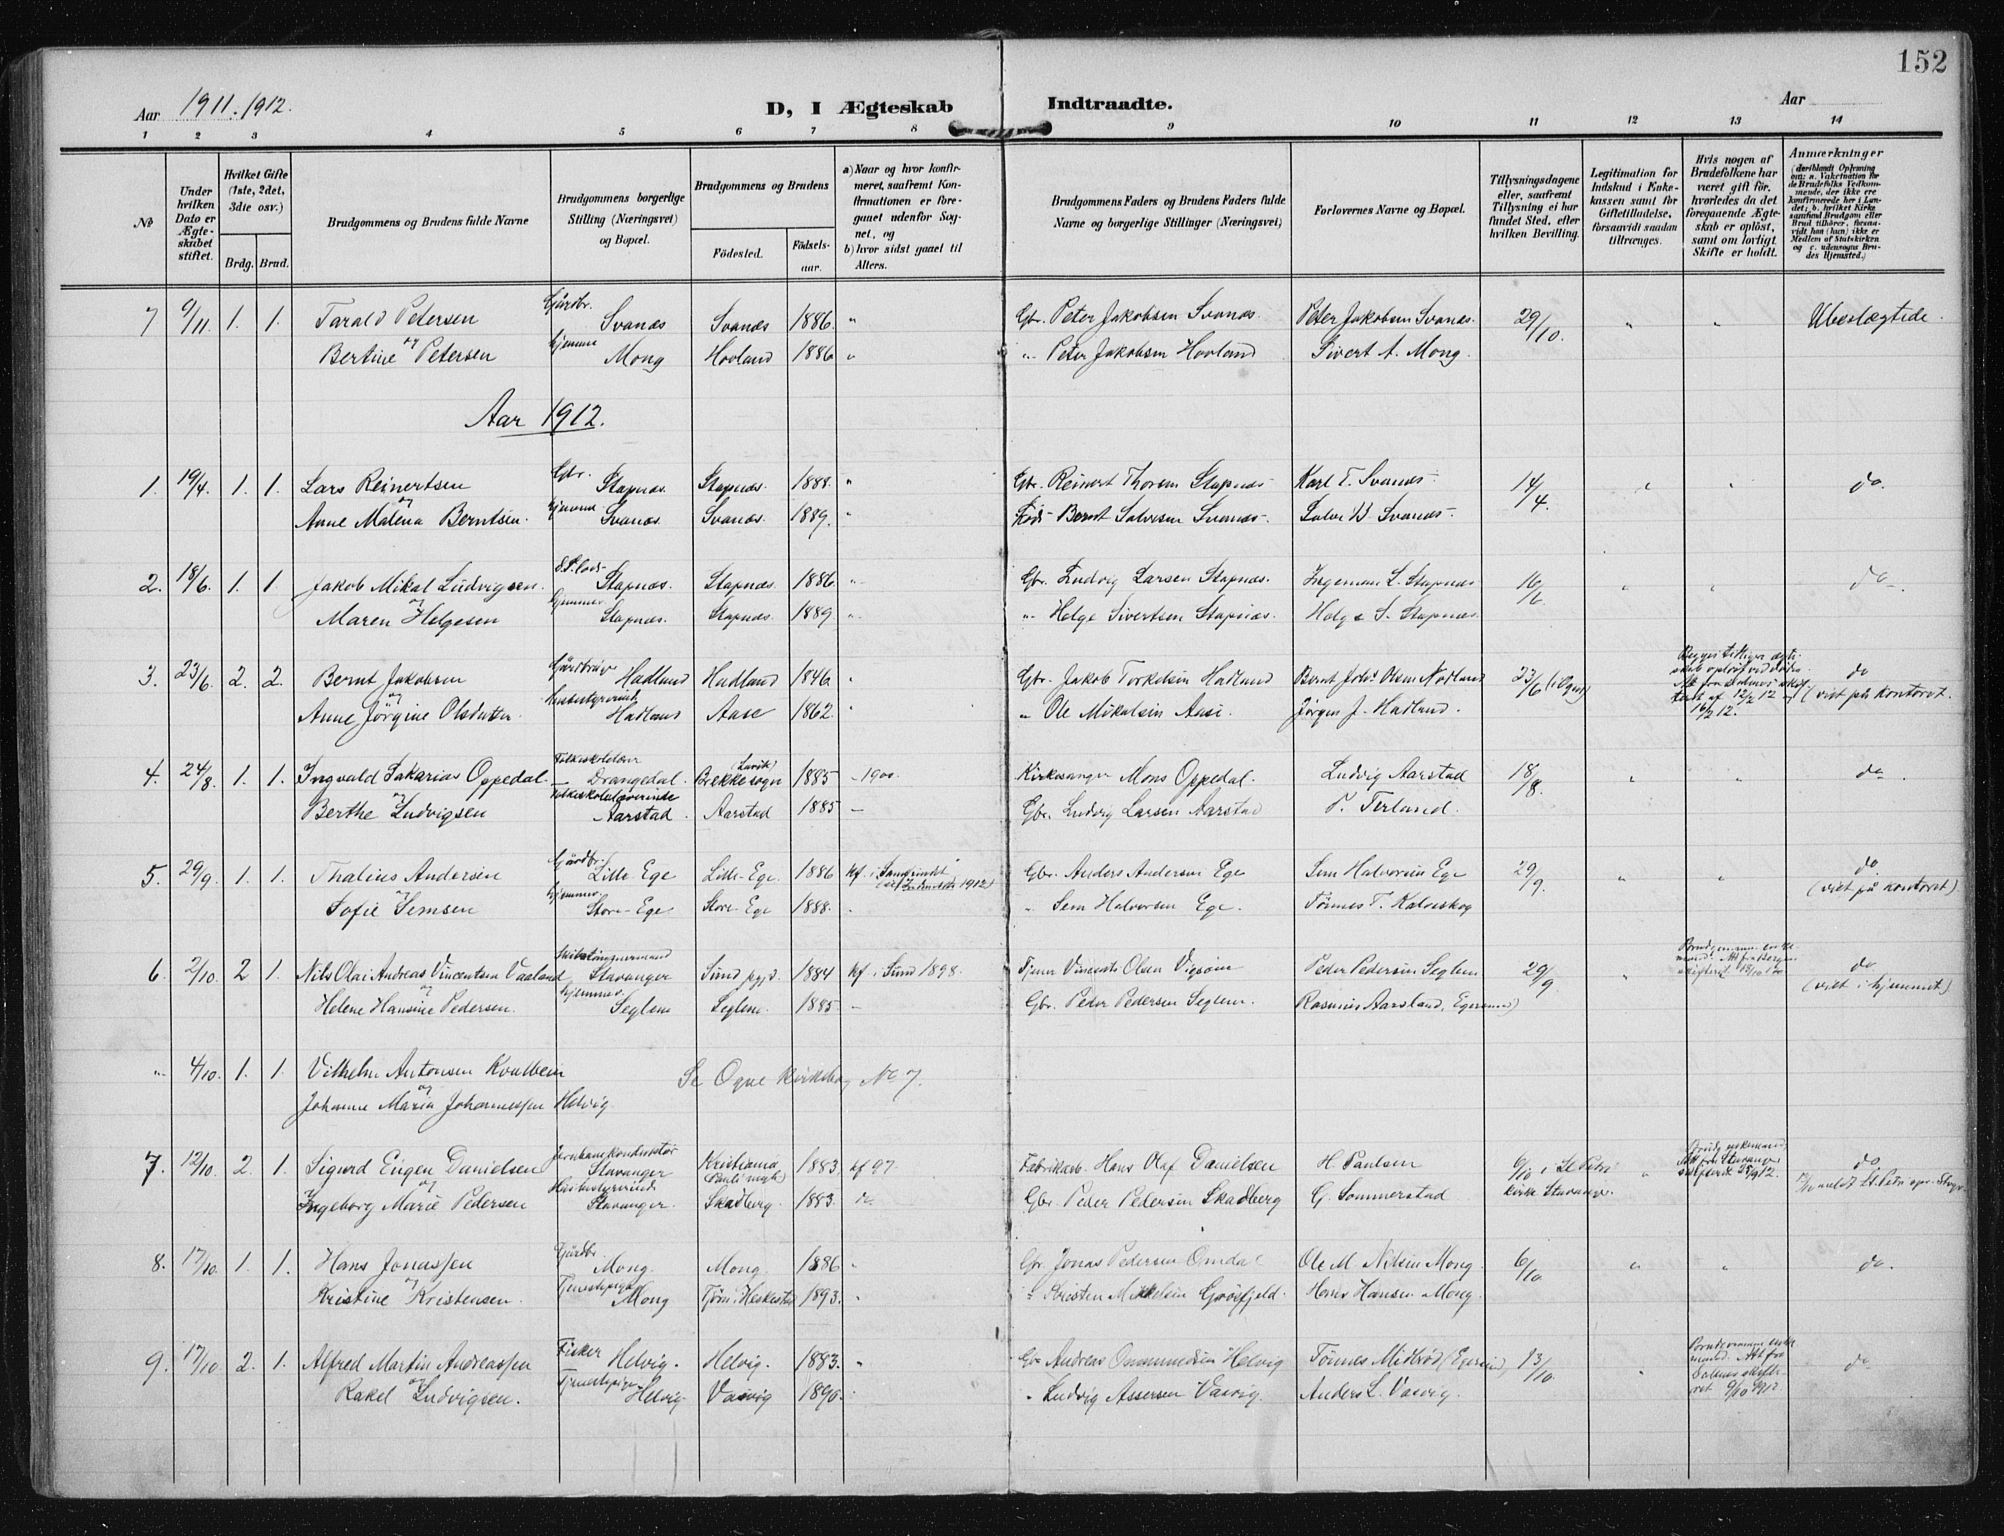 152
Aar 1911. 1912. D, I Ægteskab Indtraadte. Aar
1 2 3 4 5 6 7 8 9 10 11 12 13 14
No
Under hvilken Dato er Ægteskabet stiftet.
Hvilket Gifte (1ste, 2det, 3die osv.)
Brdg. Brud.
Brudgommens og Brudens fulde Navne
Brudgommens borgerlige Stilling (Næringsvei) og Bopæl.
Brudgommens og Brudens
Fødested. Fødselsaar.
a) Naar og hvor konfirmeret, saafremt Konfirmationen er foregaaet udenfor Sognet, og
b) hvor sidst gaaet til Alters.
Brudgommens Faders og Brudens Faders fulde Navne og borgerlige Stillinger (Næringsvei)
Forlovernes Navne og Bopæl.
Tillysningsdagene eller, saafremt Tillysning ei har fundet Sted, efter hvilken Bevilling.
Legitimation for Indskud i Enkekassen samt for Giftetilladelse, forsaavidt saadan tiltrænges.
Hvis nogen af Brudefolkene har været gift før, hvorledes da det foregaaende Ægteskab er opløst, samt om lovligt Skifte er holdt.
Anmærkninger
7 9/11 1. 1. Tarald Petersen Gårdbr. Svanæs Svanæs 1886. " Gbr. Peter Jakobsen Svanæs. Peter Jakobsen Svanæs. 29/10. " " Ubeslægtede.
og
Bertine Petersen hjemme Mong Hovland 1886 " " Peter Jakobsen Hovland Sivert A. Mong.
Aar 1912.
1. 19/4. 1. 1. Lars Reinertsen Gbr. Stapnæs. Stapnæs. 1888. " Gbr. Reinert Thorsen Stapnæs Karl T. Svanæs 14/4. " " do.
og
Anne Malena Berntsen. hjemme Svanæs. Svanæs. 1889. " Bernt Salvesen Svanæs. Salve B. Svanæs
2. 18/6. 1. 1. Jakob Mikal Ludvigsen Stapnæs. Stapnæs. 1886. " Gbr. Ludvig Larsen Stapnæs. Ingeman L. Stapnæs 16/6. " " do
og
Maren Helgesen hjemme Stapnæs. Stapnæs 1889. " " Helge Sivertsen Stapnæs. Helge S. Stapnæs.
3. 23/6. 2. 2. Bernt Jakobsen Gårdbruger Hadland Hadland 1846. " Gbr. Jakob Torkelsen Hadland Bernt Olsen Nodland 23/6 (i Ogna) do
og
Anne Jørgine Olsdatter Husbestyrerinde Hadland Aase 1862. " " Ole Mikalsen Aase. Jørgen J. Hadland. (viet på kontoret.
4. 24/8. 1. 1. Ingvald Sakarias Oppedal. Folkeskolelærer Drangedal. Brekke sogn (Lavik) 1885 1900. Kirkesanger Mons Oppedal. Ludvig Aarstad 18/8. " " do
og
Berthe Ludvigsen Folkeskolelærerinde Aarstad Aarstad 1885 — Gbr. Ludvig Larsen Aarstad P. Terland.
5. 29/9. 1. 1. Thalius Andersen Gårdbr. Lille-Ege Lille-Ege. 1886 kf. i 1912) Gbr. Anders Andersen Ege Sem Halvorsen Ege 29/9. " " do
og
Sofie Semsen hjemme Store-Ege Store-Ege 1888. " " Sem Halvorsen Ege. Tønnes T. Kalveskog (viet på kontoret)
6. 2/10. 2 1. Nils Olai Andreas Vincentsen Vaaland Skibstømmermand Stavanger Sund pgjd. 1884 kf. i Sund 1898. Vincents Olsen Peder Pedersen Seglem 29/9 " do
og
Helene Hansine Pedersen. hjemme Seglem Seglem. 1885. — Gbr. Peder Pedersen Seglem. Rasmus Aarsland, Egersund) (viet i hjemmet)
" 4/10. 1. 1. Vilhelm Antonsen Kvalbein Se Ogne kirkebog No 7.
og
Johanne Maria Johannessen Helvig.
7. 12/10. 2. 1. Sigurd Eugen Danielsen Jernbanekonduktør Stavanger Kristiania 1883. kf 97. Hans Olaf Danielsen H. Paulsen 6/10 i St. Petri kirke Stavanger. " do
og
Ingeborg Marie Pedersen Husbestyrerinde Stavanger. Skadberg. 1883. do Gbr. Peder Pedersen Skadberg G. Sommerstad
8. 17/10. 1. 1. Hans Jonassen Gårdbr. Mong. Mong. 1886 " Gbr. Jonas Pedersen Omdal Ole M. Nilsen Mong. 6/10. " " do.
og
Kristine Kristensen. Tjenestepige Mong Heskestad 1893. " " Kristen Mikkelsen Grøsfjeld. Hans Hansen Mong.
9. 17/10. 2. 1. Alfred Martin Andreassen Fisker Helvig. Helvig. 1883. " Gbr. Andreas Ommundsen Helvig Tønnes Midbrød (Egersund) 13/10. do
og
Rakel Ludvigsen. Tjenestepige Helvig Varvig 1890. " Ludvig Assersen Varvig. Anders L. Varvig.